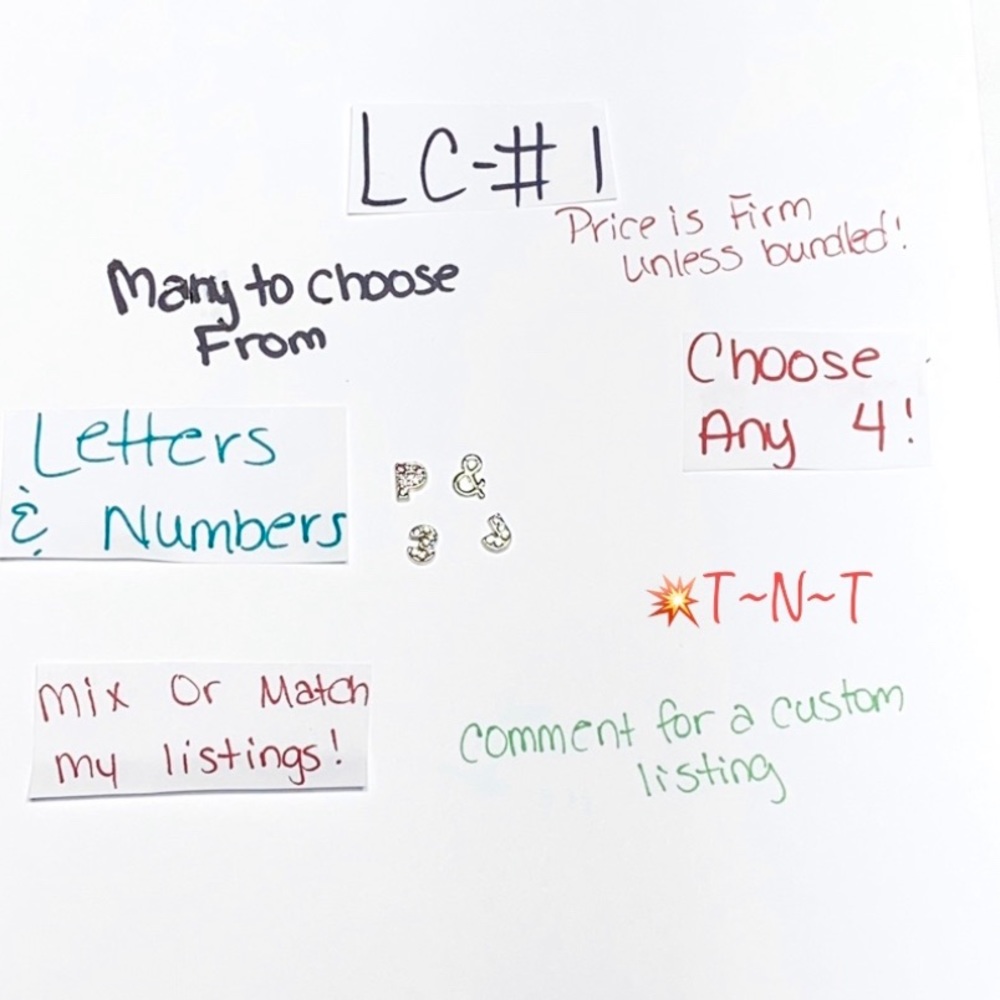 LC-#1
Price is Firm
unless bundled!
Many to choose
From
Choose
Any 4!
Letters
& Numbers
P &
3 J
💥T~N~T
Mix Or Match
my listings!
comment for a custom
listing